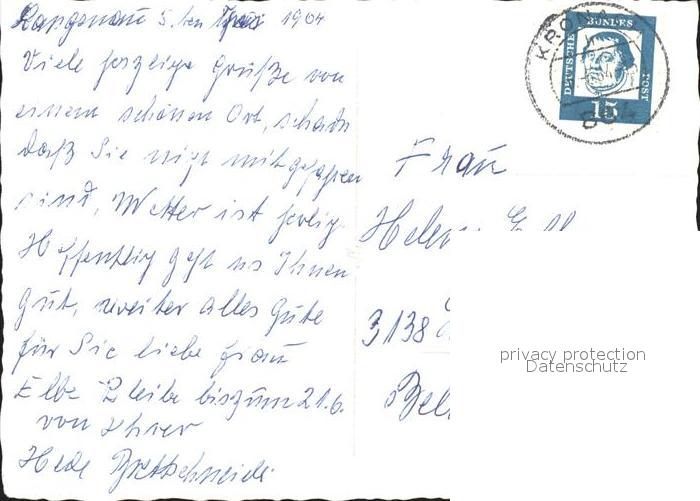 5. ten 1964
Viele herzliche Grüße von
einem schönen Ort, schade
daß Sie nicht mitgefahren
sind, Wetter ist herlig
Hoffentlich geht es Ihnen
Gut, weiter alles Gute
für Sie liebe Frau
Elbe Bleibe bis zum 21.6.
von Ihrer
Hede Brettschneider
KRONA
DEUTSCHE BUNDESPOST
15
864
Frau
Helen
3138
privacy protection
Datenschutz